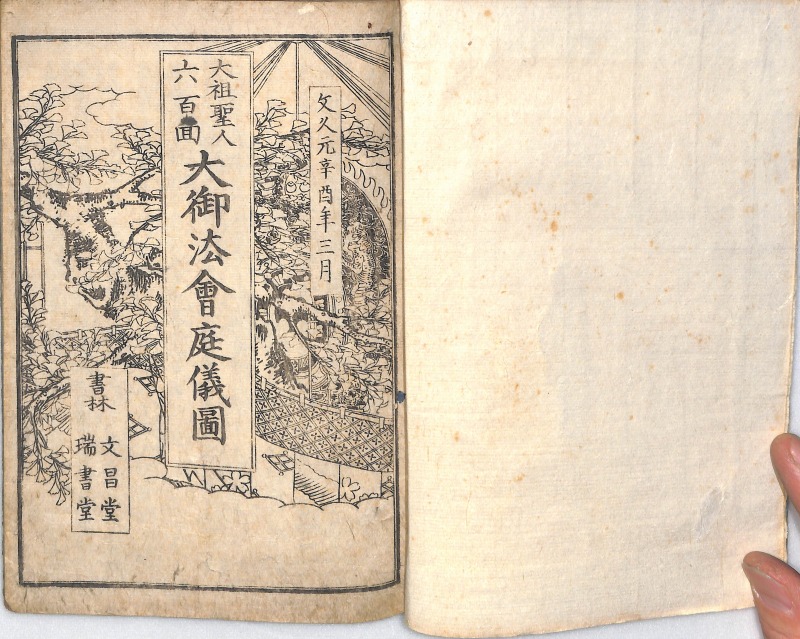 文久元辛酉年三月
大祖聖人
六百回
大御法會庭儀圖
書林
文昌堂
瑞書堂